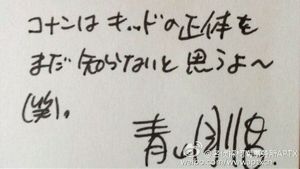 コナンはキッドの正体を
まだ知らないと思うよ～
(笑)。
青山剛昌
weibo.com/